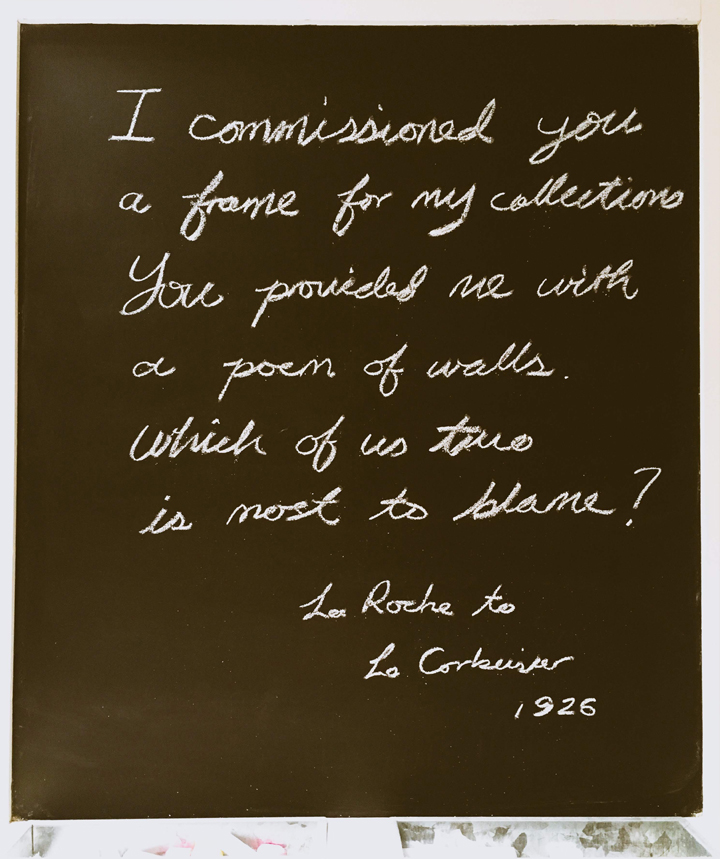 I commissioned you
a frame for my collections
You provided me with
a poem of walls.
Which of us two
is most to blame?
La Roche to
Le Corbusier
1926